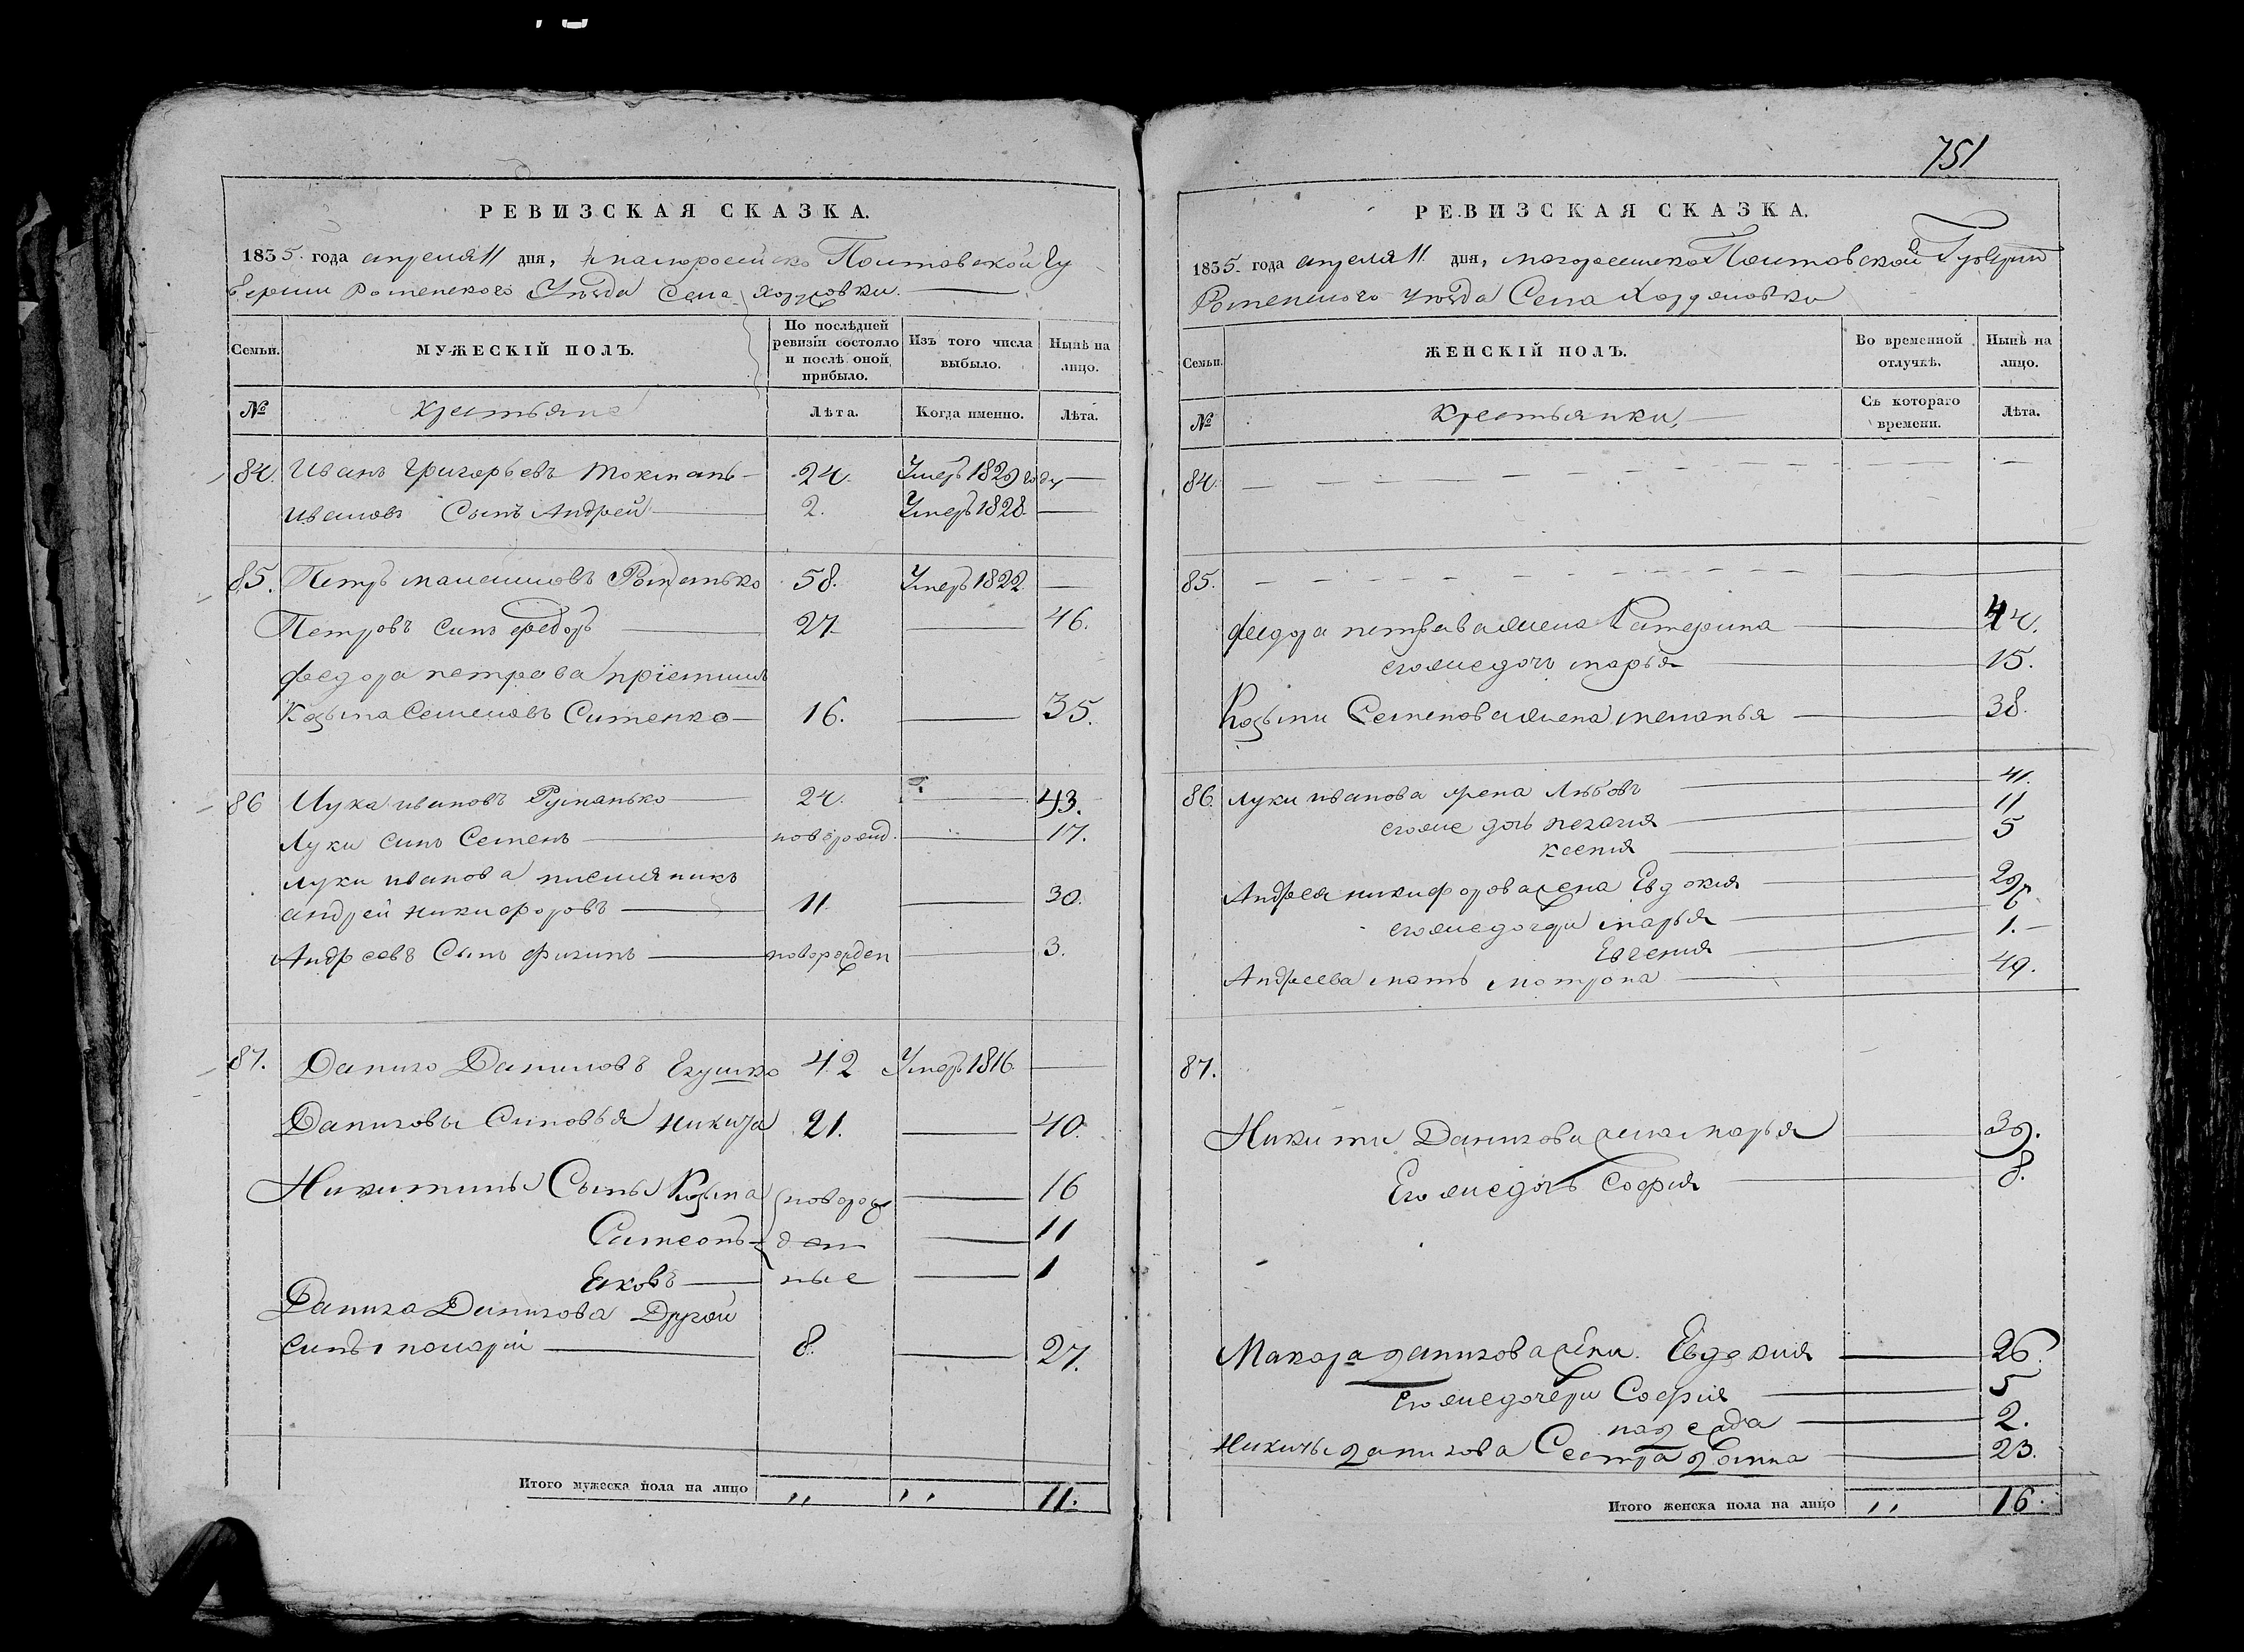 751
РЕВИЗСКАЯ СКАЗКА.
1835. года апреля 11 дня, Малоросійско Полтавской Гу
берніи Роменского Уезда Села
Семьи.
МУЖЕСКІЙ ПОЛЪ.
По послѣдней ревизіи состояло и послѣ оной прибыло.
Изъ того числа выбыло.
Нынѣ на лицо.
№
Крестьяне
Лѣта.
Когда именно.
Лѣта.
84. Иванъ Григорьевъ 24. Умеръ 1829 году —
Ивановъ Сынъ Андрей — 2. Умеръ 1828. —
85. Петръ 58. Умеръ 1822. —
Петровъ синъ Федоръ — 27. — 46.
Федора петрова пріемишъ
Козьма Семеновъ Ситенко — 16. — 35.
86 Лука ивановъ Русанько — 24. — 43.
Луки синъ Семенъ — новорожд. — 17.
Луки иванова племяникъ
андрей никифоровъ — 11 — 30.
Андреевъ Сынъ филипъ — новорожден — 3.
87. Данило Даниловъ 42 Умеръ 1816. —
Даниловы Синовья никита 21. — 40.
Никитины Сыны Козьма новорож — 16
Симеонъ ден — 11
Яковъ — ные — 1
Данила Данилова Другой
синъ макарій — 8. — 27.
Итого мужеска пола на лицо ,, ,, 11.
РЕВИЗСКАЯ СКАЗКА.
1835. года апреля 11. дня, малоросийско Полтавской Губерніи
Роменского уезда Села
Семьи.
ЖЕНСКІЙ ПОЛЪ.
Во временной отлучкѣ.
Нынѣ на лицо.
№
Крестьянки,
Съ котораго времени.
Лѣта.
84. — — —
85. — — —
Федора петрова жена Катерина — 44.
его же дочь марья — 15.
Козьми Семенова жена меланья — 38.
86. Луки иванова жена Любовъ — 41.
его же дочь пелагия — 11
ксения — 5
Андрея никифорова жена Евдокия — 29
его же дочери марья — 6
Евгения — 1. —
Андреева мать мотрона — 49.
87.
Никити Данилова жена марья 39.
Его же дочь София — 8.
Макара данилова жена. Евдокия — 26.
Его же дочери София — 5
надежда — 2.
Никиты данилова Сестра домна — 23.
Итого женска пола на лицо ,, 16.